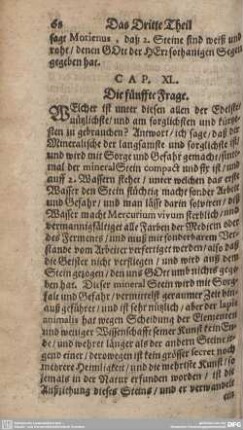 68 Das Dritte Theil
sagt Morienus, daß 2. Steine sind weiß und
roht/ denen GOtt der HErr sothanigen Segen
gegeben hat.
CAP. XL.
Die fünffte Frage.
WElcher ist unter diesen allen der Edelste/
nützlichste/ und am sorglichsten und kürtze-
sten zu gebrauchen? Antwort/ ich sage/ daß der
Mineralische der langsamste und sorglichste ist/
und wird mit Sorge und Gefahr gemacht/
mal der mineral Stein compact und ist/ und
auff 2. Wassern stehet/ unter welchen das erste
Wasser den Stein flüchtig macht sonder Arbeit
und Gefahr/ und man lässt darin solviren/ deß
Wasser macht Mercurium vivum sterblich/ und
vermannigfältiget alle Farben der Medicin oder
des Fermentes/ und muß mit sonderbarem Ver-
stande vom Arbeiter verfertiget werden/ also daß
die Geister nicht verfliegen/ und wird auß dem
Stein gezogen/ den uns GOtt umb nichts gege-
ben hat. Dieser mineral Stein wird mit Sorg-
falt und Gefahr/ vermittelst geraumer Zeit hin-
auß geführet/ und ist sehr nützlich/ aber der lapis
animalis hat wegen Scheidung der Elementen
und weniger Wissenschafft seiner Kunst kein En-
de/ und wehret länger als der andern Steine
gend einer/ derowegen ist kein grösser secret noch
mehrere Heimligkeit/ und die mehrste Kunst/ so
jemals in der Natur erfunden worden/ ist die
Auffziehung dieses Steins/ und er verwandelt